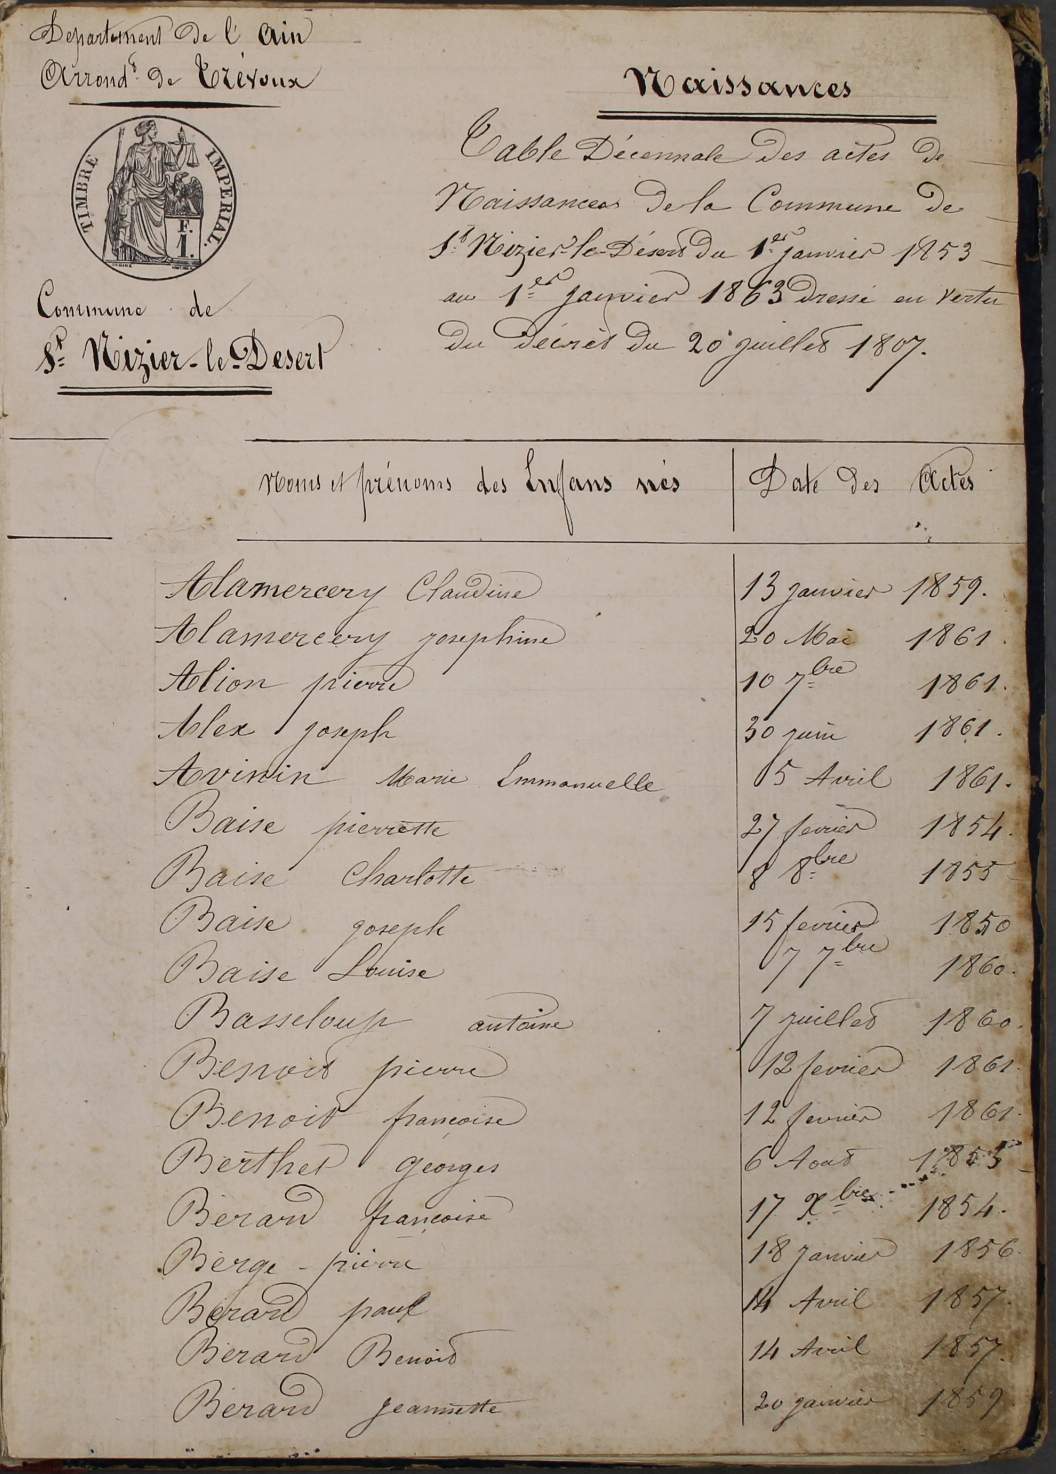 Departement de l'Ain
Arrondt de Trévoux
TIMBRE IMPERIAL.
F.
1.
Commune de
St Nizier-le-Desert
Naissances
Table Décennale des actes de
Naissances de la Commune de
St Nizier-le-Désert du 1er janvier 1853
au 1er janvier 1863 dressé en vertu
du décrèt du 20 juillet 1807.
Noms et prénoms des Enfans nés Date des Actes
Alamercery Claudine 13 janvier 1859.
Alamercery josephine 20 Mai 1861.
Alion pierre 10 7bre 1861.
Alex joseph 30 juin 1861.
Avinin Marie Emmanuelle 5 Avril 1861.
Baise pierrette 27 fevrier 1854.
Baise Charlotte 8 8bre 1855
Baise joseph 15 fevrier 1850
Baise Louise 7 7bre 1860.
Basseloup antoine 7 juillet 1860.
Benoit pierre 12 fevrier 1861
Benoit françoise 12 fevrier 1861.
Berthet georges 6 Aout 1853
Bérard françoise 17 Xbre 1854.
Berge - pierre 18 janvier 1856.
Bérard paul 14 Avril 1857.
Bérard Benoit 14 Avril 1857.
Bérard jeannette 20 janvier 1859